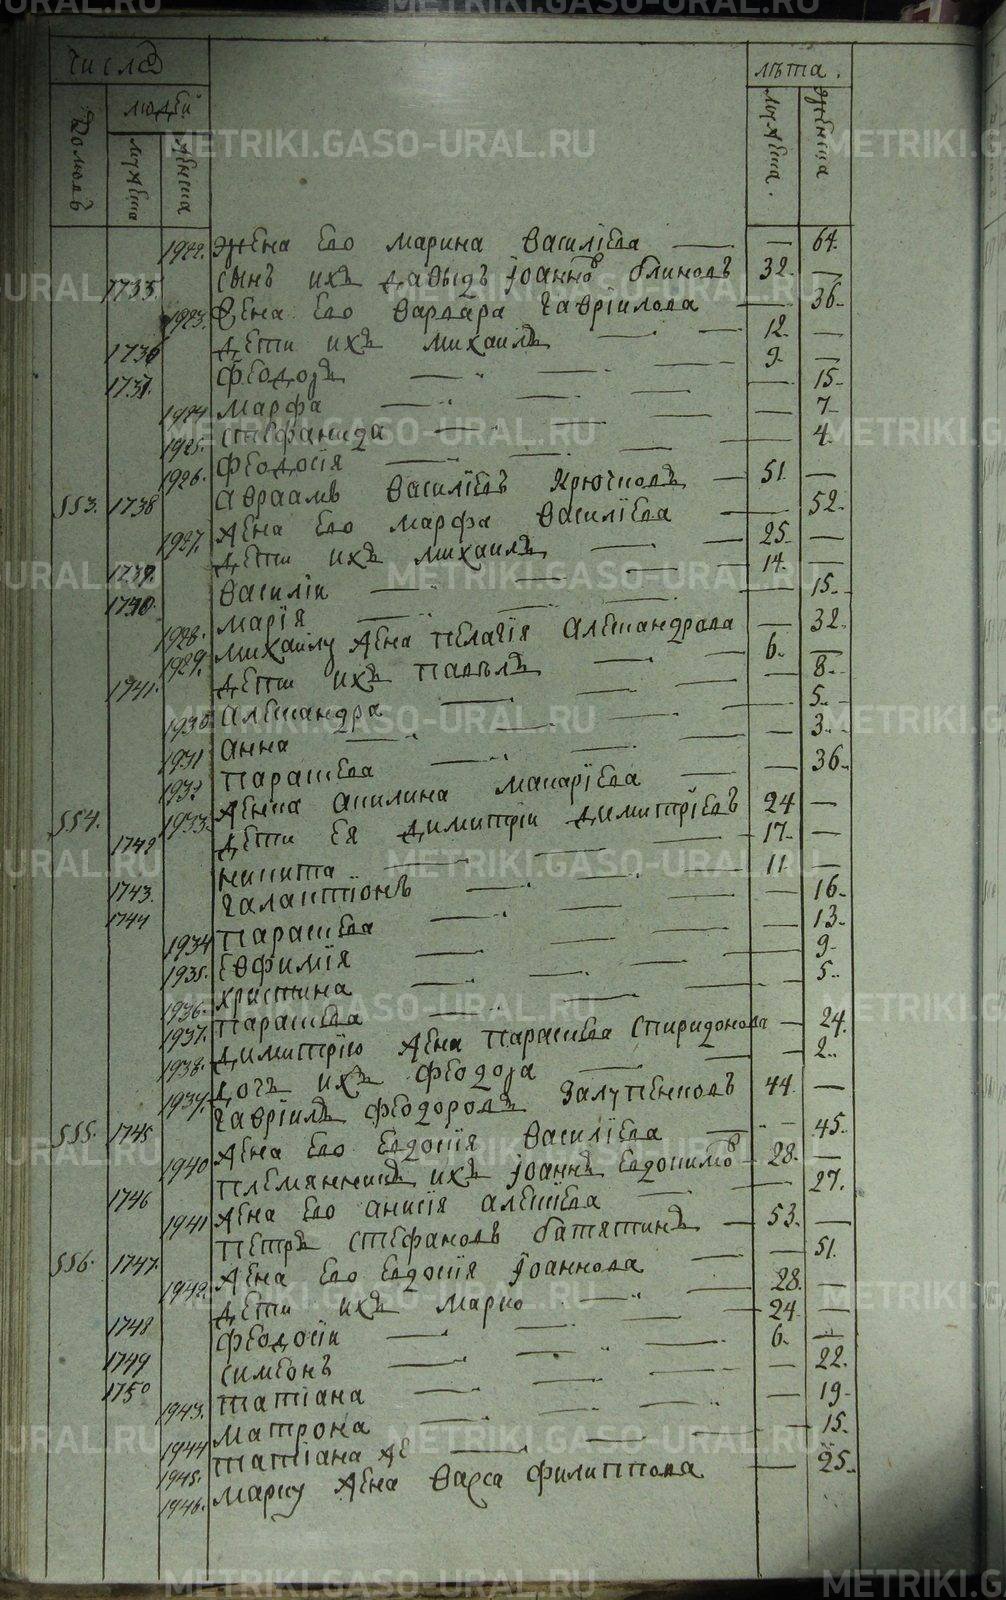 METRIKI.GASO-URAL.RU
числа
лѣта.
людей
домовъ
мужеска
женска
мужеска.
женска
1922. Жена Его Марина Василіева — — 64.
1735. сынъ ихъ Давыдъ Іоанновъ блиновъ 32. —
1923. Жена Его Варвара Гавріилова — 36.
1736 дети ихъ Михаилъ — 12. —
1737. Феодоръ — 9. —
1924 Марфа — — 15.
1925. Стефанида — — 7.
1926. Феодосія — — 4.
553. 1738 Авраамъ Василіевъ Крючковъ — 51. —
1927. Жена Его Марфа Василіева — 52.
1739. дети ихъ Михаилъ — 25. —
1740. Василіи — 14. —
1928. Марія — — 15.
1929. Михаилу Жена Пелагія Александрова — 32.
1741. дети ихъ Павелъ — 6. —
1930 Александра — — 8.
1931 Анна — — 5.
1932 Параскева — — 3.
554. 1933. Женка Акилина Макаріева — — 36.
1742 дети Ея Димитріи Димитріевъ 24 —
1743. Никита — 17. —
1744 Галактіонъ — 11 —
1934 Параскева — — 16.
1935. Евфимія — — 13.
1936. Христина — — 9.
1937. Параскева — — 5.
1938. Димитрію Жена Параскева Спиридонова — 24.
1939. дочь ихъ Феодора — — 2.
555. 1745 Гавріилъ Феодоровъ Залупенковъ 44. —
1940 Жена Его Евдокія Василіева — — 45.
1746 племянникъ ихъ Іоаннъ Евдокимовъ 28. —
1941 Жена Его Анисія Алексіева — — 27.
556. 1747. Петръ Стефановъ батятинъ — 53. —
1942. Жена Его Евдокія Іоаннова — — 51.
1748 дети ихъ Марко — 28. —
1749 Феодосіи — 24. —
1750 Симеонъ — 6. —
1943. Татіана — — 22.
1944 Матрона — — 19.
1945. Татіана же — — 15.
1946. Марку Жена Васса Филиппова — 25.